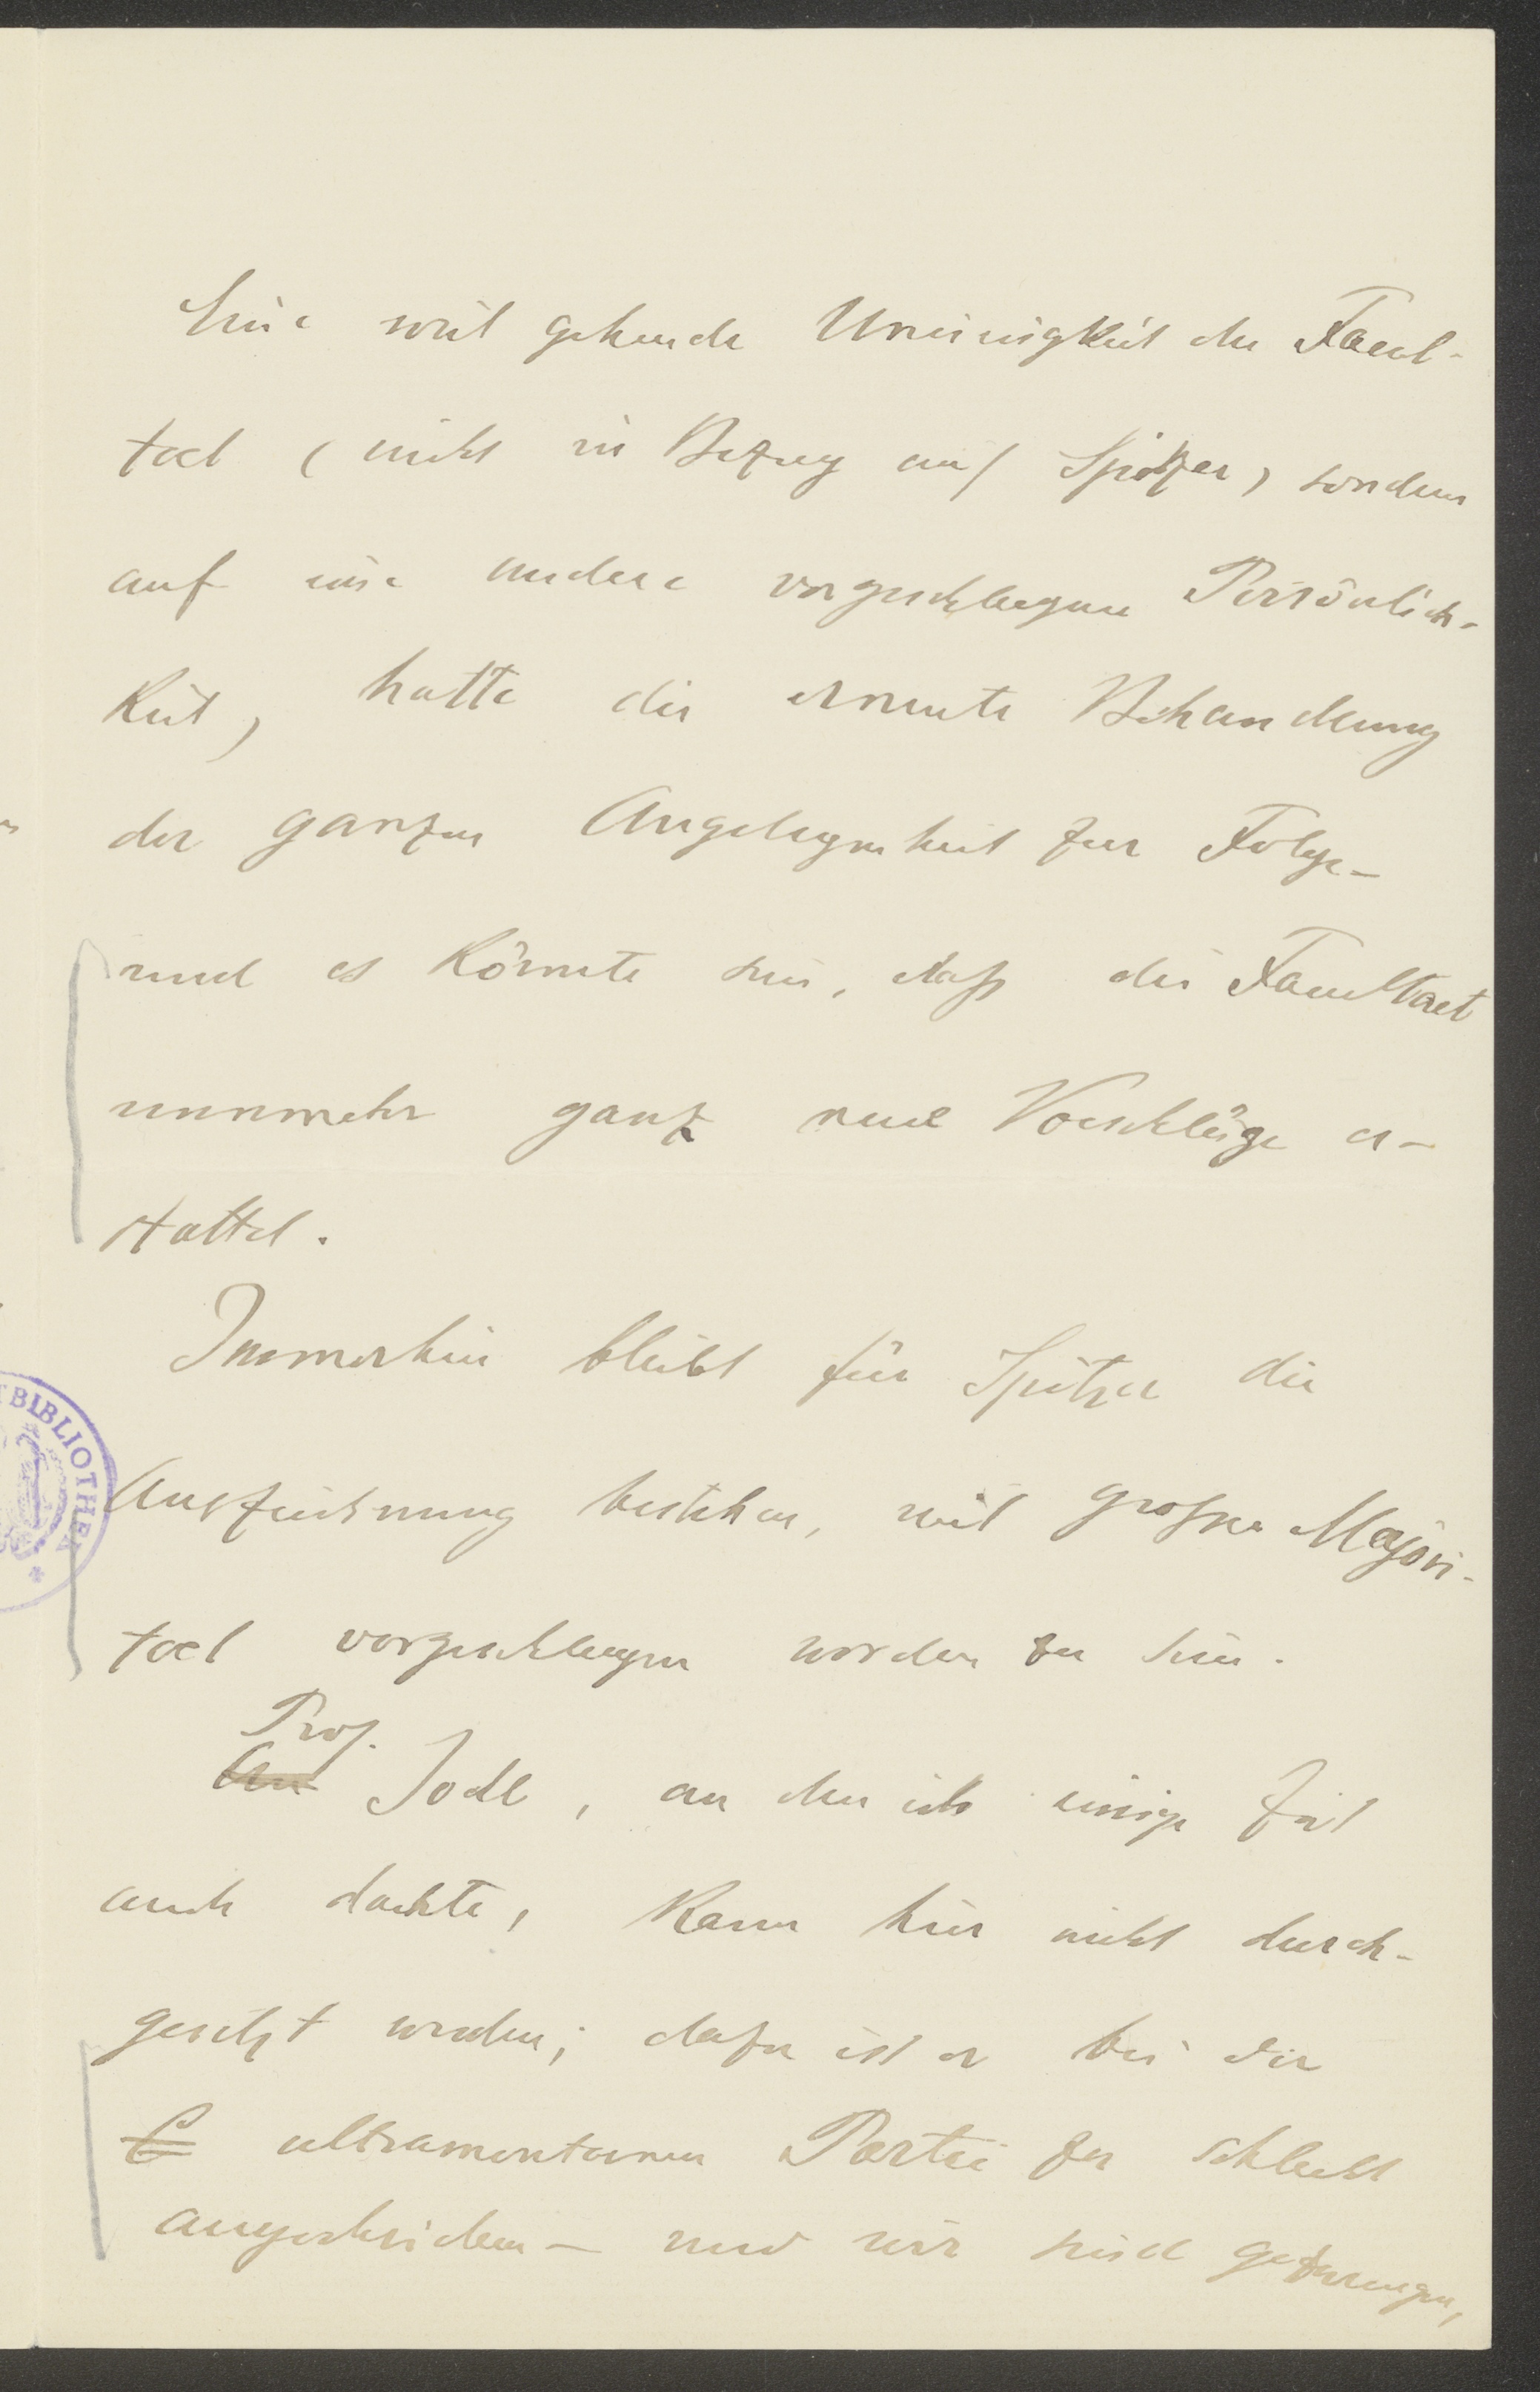 Eine weit gehende Uneinigkeit der Facul-
taet (nicht in Bezug auf Spitzer, sondern
auf eine andere vorgeschlagene Persönlich-
keit) hatte die erneute Behandlung
der ganzen Angelegenheit zur Folge –
und es könnte sein, dass die Facultaet
nunmehr ganz neue Vorschläge er-
stattet.
Immerhin bleibt für Spitzer die
Auszeichnung bestehen, mit grosser Majori-
taet vorgeschlagen worden zu sein.
Prof.
An Jodl, an den ich einige Zeit
auch dachte, kann hier nicht durch-
gesetzt werden; dazu ist er bei der
C ultramontanen Partei zu schlecht
angeschrieben – und wir sind gezwungen,
BIBLIOTHEK